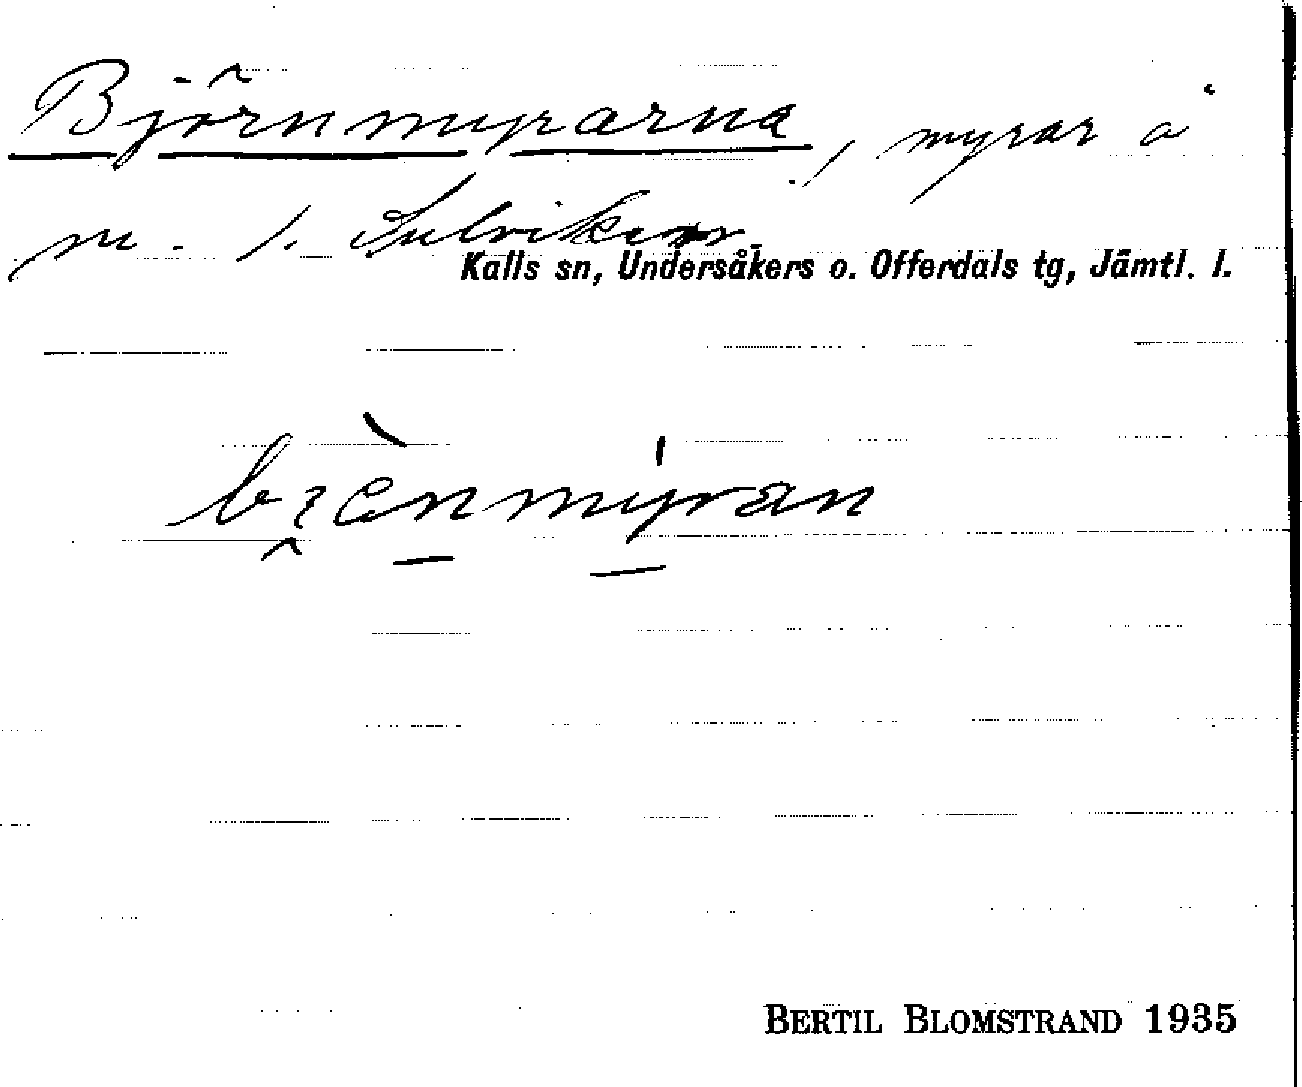 Björnmyrarna, myrar å
m. t. Sulviken
Kalls sn, Undersåkers o. Offerdals tg, Jämtl. l.
BERTIL BLOMSTRAND 1935